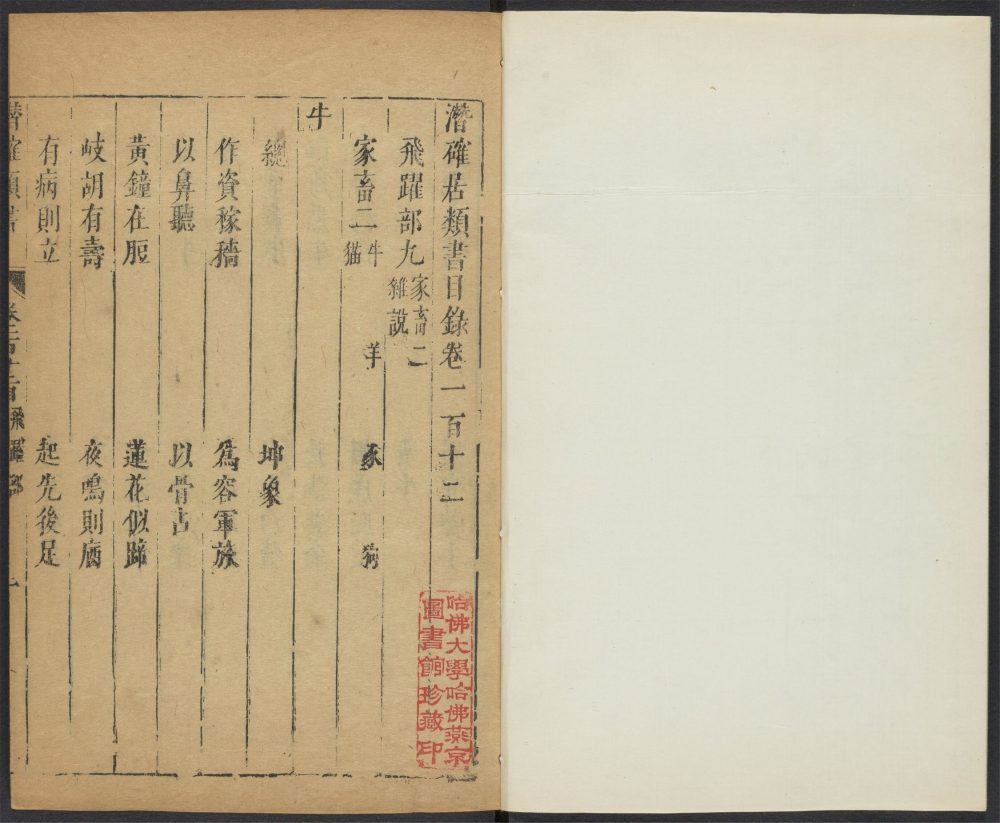 潛確居類書目錄卷一百十二
飛躍部九 家畜二 雜說
家畜二 牛 羊 豕 狗 猫
牛
總 坤象
作資稼穡 爲容軍旅
以鼻聽 以骨占
黃鐘在脰 蓮花似蹄
岐胡有壽 夜鳴則庮
有病則立 起先後足
飛躍部
哈佛大學哈佛燕京
圖書館珍藏印